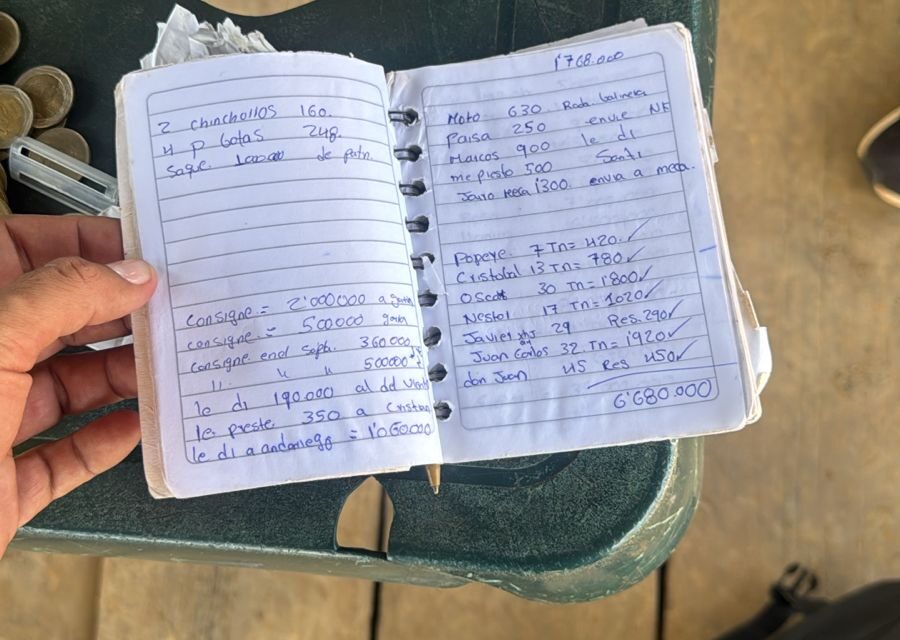 2 chinchollos 160.
4 p botas 248.
saque 1000.000 de patn.
consigne = 2'000000 a
consigne = 500000
consigne end Sept. 360.000
" " " 500000
le di 190.000 al dd
le preste 350 a Cristian
le di a andanegg = 1'060000
1'768.000
Moto 630 Roda. balinera
Paisa 250 envie NK
Marcos 900 le di
me presto 500 Santi
Jairo 1'300. envia a meca.
Popeye. 7 Tn = 420. ✓
Cristobal 13 Tn = 780 ✓
Oscar 30 Tn = 1'800 ✓
Nestol 17 Tn = 1020 ✓
Javier 29 Res. 290 ✓
Juan Carlos 32. Tn = 1920 ✓
don Juan 45 Res 450 ✓
6'680.000